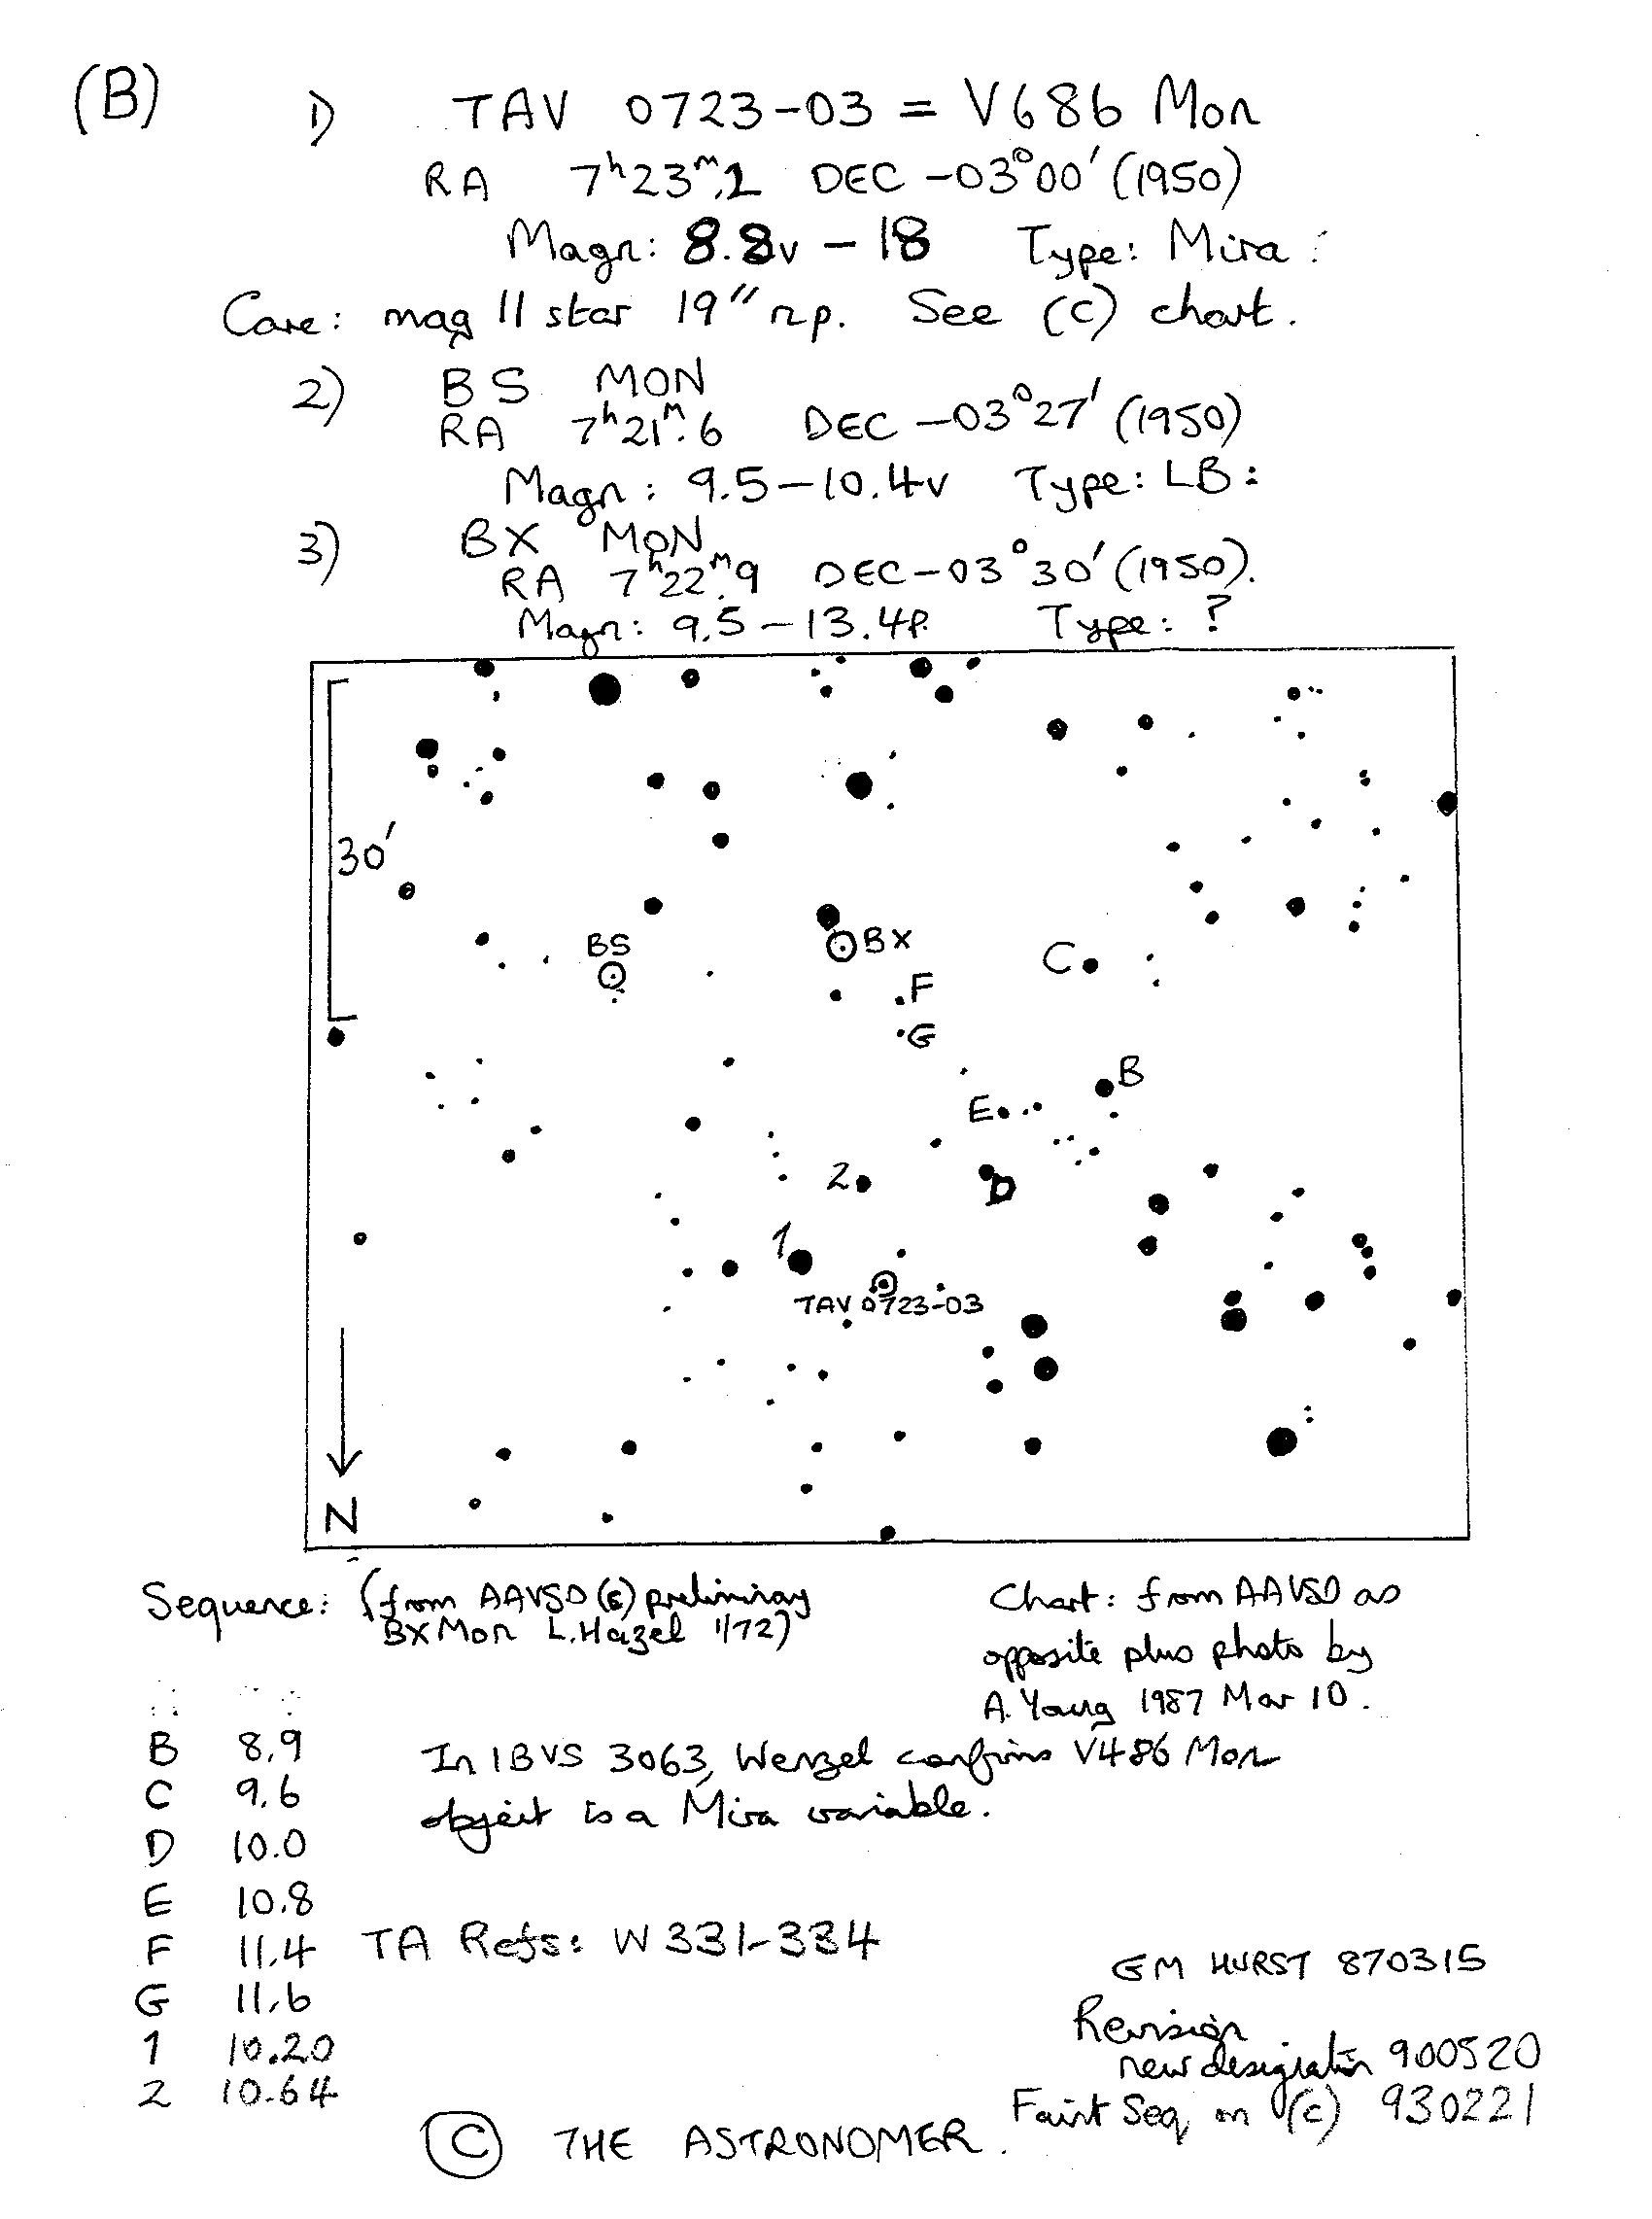 (B)
1) TAV 0723-03 = V686 Mon
RA 7ʰ23ᵐ.1 DEC -03°00' (1950)
Magn: 8.8v - 18 Type: Mira:
Care: mag 11 star 19" np. See (C) chart.
2) BS MON
RA 7ʰ21ᵐ.6 DEC -03°27' (1950)
Magn: 9.5-10.4v Type: LB:
3) BX MON
RA 7ʰ22ᵐ.9 DEC -03°30' (1950).
Magn: 9.5-13.4p. Type: ?
30'
BS
BX
C
F
G
B
E
2
D
1
TAV 0723-03
N
Sequence: (from AAVSO (s) preliminay
BX Mon L. Hazel 1/72)
Chart: from AAVSO as
opposite plus photo by
A. Young 1987 Mar 10.
B 8.9
C 9.6
D 10.0
E 10.8
F 11.4
G 11.6
1 10.20
2 10.64
In IBVS 3063, Wenzel confirms V486 Mon
object is a Mira variable.
TA Refs: W 331-334
GM HURST 870315
Revision
new designation 900520
Faint Seq on (c) 930221
© THE ASTRONOMER.